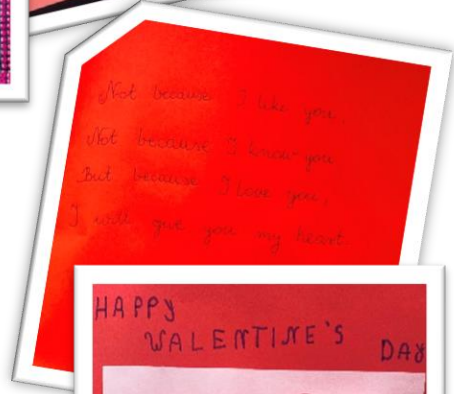 Not because I like you,
Not because I know you
But because I love you,
I will give you my heart.
HAPPY
WALENTINE'S DAY